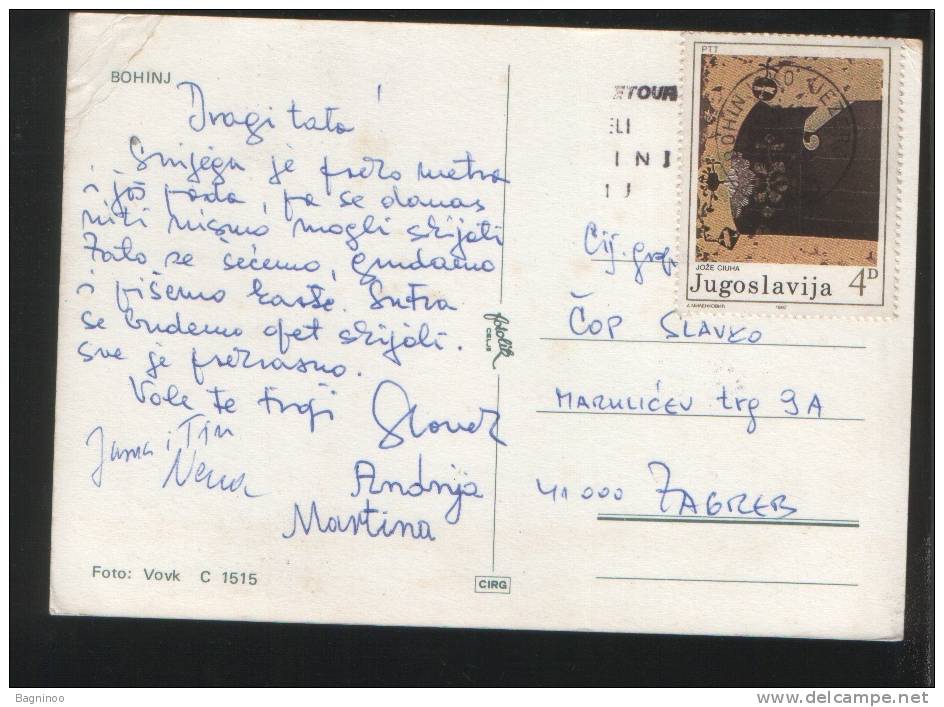 BOHINJ
Dragi tata!
Snijega je preko metra
i još pada, pa se danas
niti nismo mogli skijati
Zato se šećemo, grudamo
i pišemo karte. Sutra
se budemo opet skijali.
Sve je prekrasno.
Vole te tvoji
Jama i Tin
Nena
Andrija
Martina
Foto: Vovk C 1515
fotolik
CELJE
CIRG
ETOUR
ELI
INJ
IJ
PTT
BOHINJSKO JEZERO
JOŽE CIUHA
Jugoslavija 4D
Cij. gosp.
ČOP SLAVKO
MARULIĆEV trg 9A
41000 ZAGREB
Bagninoo
www.delcampe.net